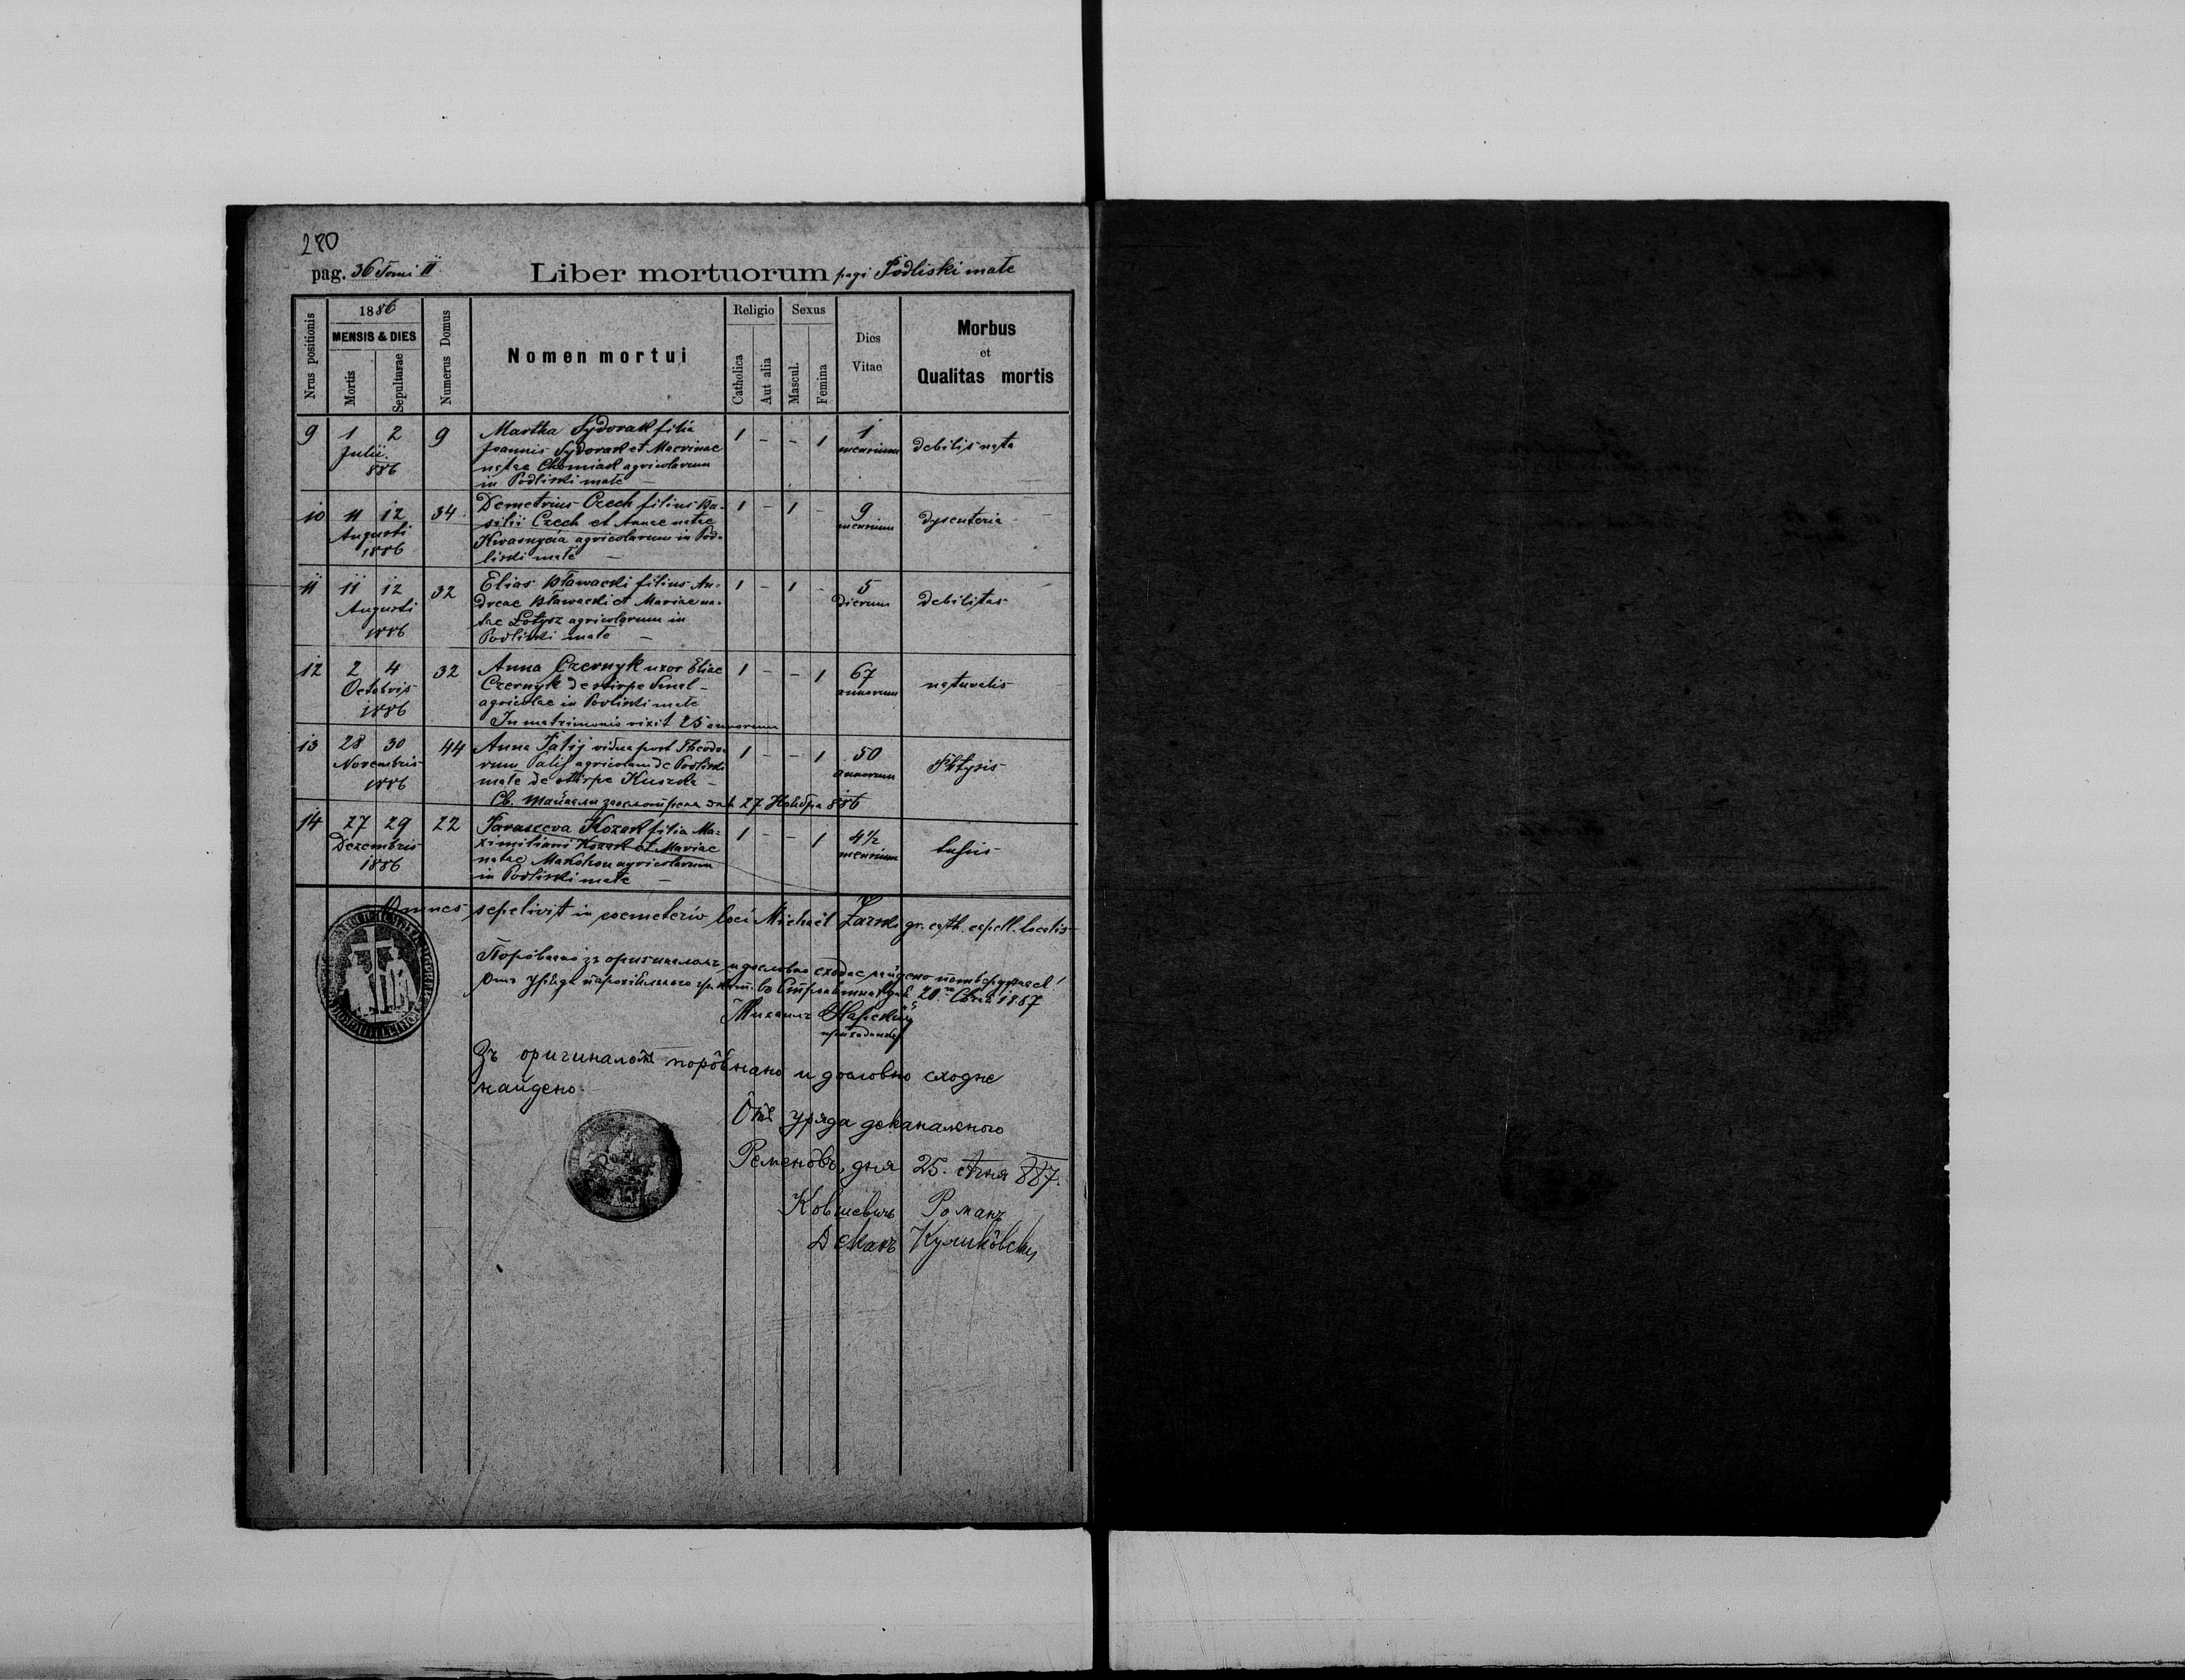 280
pag. 36 Tomi II Liber mortuorum pagi Podliski małe
Nrus positionis
1886
MENSIS & DIES
Mortis
Sepulturae
Numerus Domus
Nomen mortui
Religio
Catholica
Aut alia
Sexus
Mascul.
Femina
Dies
Vitae
Morbus
et
Qualitas mortis
9 1 2 9 Martha Sydorak filia 1 - - 1 1 debilis nata
Julii Joannis Sydorak et Macrinae mensium
886 natae Chomiak agricolarum
in Podliski małe —
10 11 12 34 Demetrius Czech filius Ba- 1 - 1 - 9 dysenteria
Augusti silii Czech et Annae natae mensium
1886 Kwasnycia agricolarum in Pod-
liski małe —
11 11 12 32 Elias Bławacki filius An- 1 - 1 - 5 debilitas
Augusti dreae Bławacki et Mariae na- dierum
1886 tae Łotysz agricolarum in
Podliski małe —
12 2 4 32 Anna Czernyk uxor Eliae 1 - - 1 67 naturalis
Octobris Czernyk de stirpe annorum
1886 agricolae in Podliski małe
In matrimonio vixit 25 annorum
13 28 30 44 Anna Palij vidua post Theodo- 1 - - 1 50 Phtysis
Novembris rum Palij agricolam de Podliski annorum
1886 małe de stirpe Kuszla —
Св. Тайнами заосмотрена 27 Ноября 886
14 27 29 22 Parasceva Kozak filia Ma- 1 - - 1 4 1/2 tussis
Dezembris ximiliani Kozak et Mariae mensium
1886 natae Makohon agricolarum
in Podliski małe —
Omnes sepelivit in coemeterio loci Michaël Żarski gr. cath. capell. localis
Поровнано зъ оригиналомъ и дословно сходне найдено потверджаесь!
Отъ уряда парохіяльного 20. 1887
Михаилъ
Зъ оригиналомъ порôвнано и дословно сходне
найдено.
Отъ уряда деканального
Ременôвъ, дня 25. 887.
Ковшевичъ Романъ
Деканъ Куликôвскій